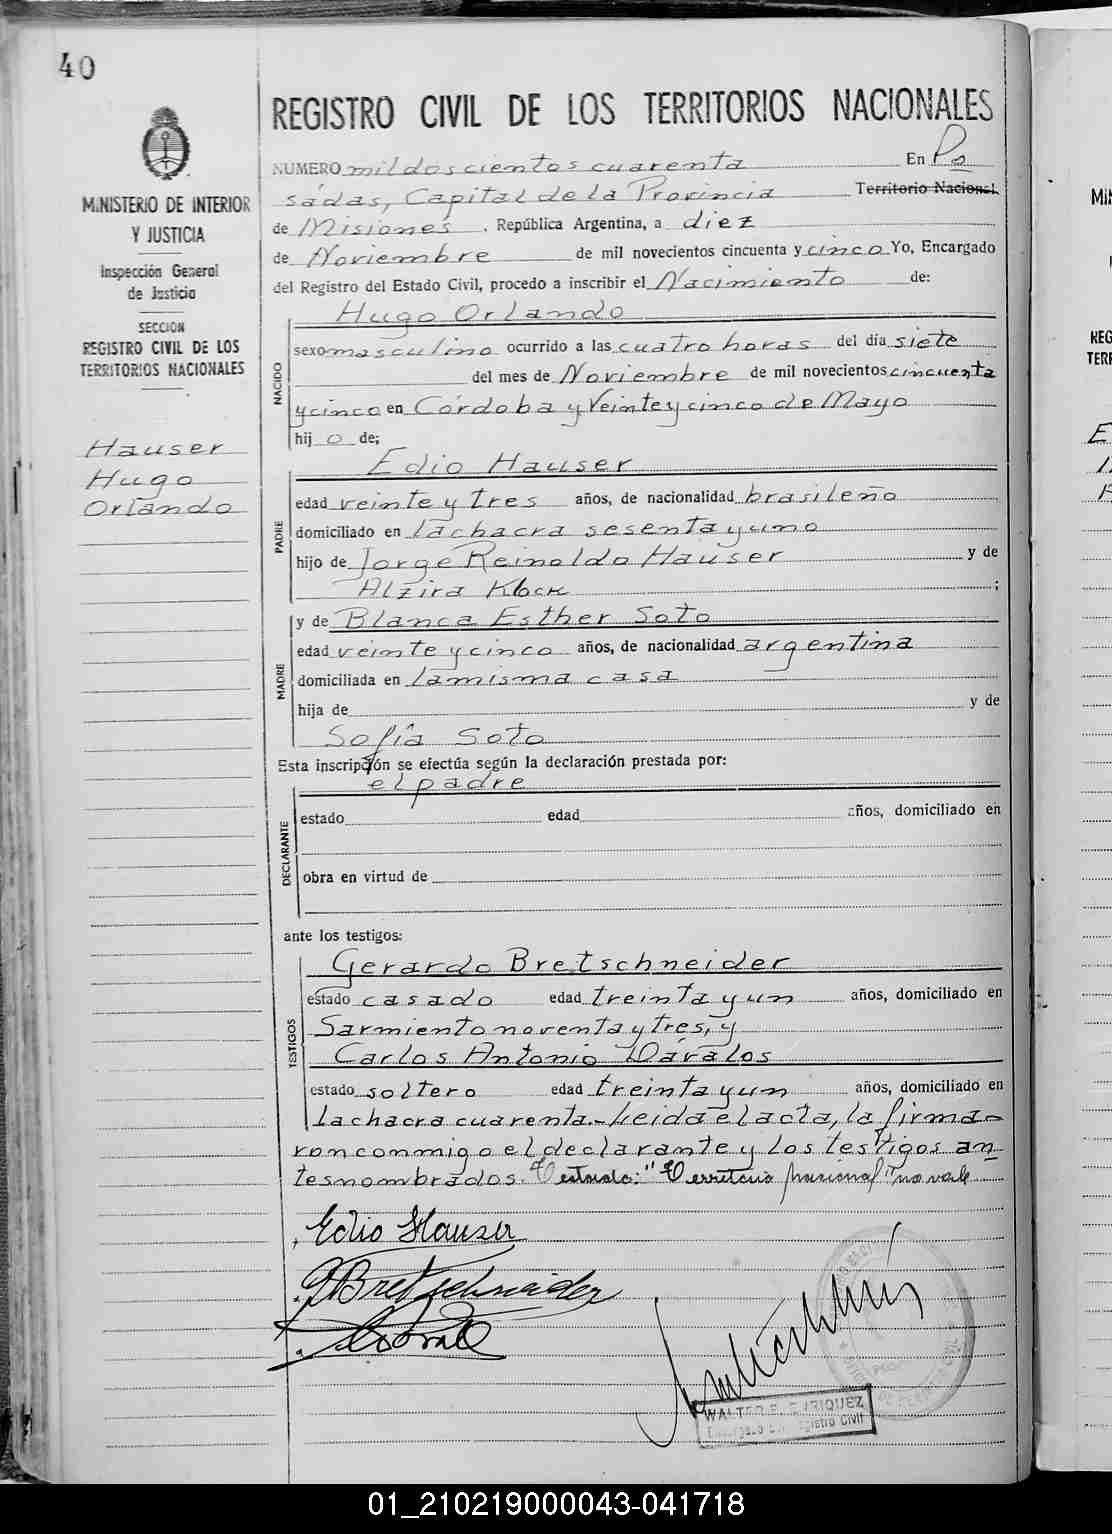 40
MINISTERIO DE INTERIOR
Y JUSTICIA
Inspección General
de Justicia
SECCION
REGISTRO CIVIL DE LOS
TERRITORIOS NACIONALES
Hauser
Hugo
Orlando
REGISTRO CIVIL DE LOS TERRITORIOS NACIONALES
NUMERO mil doscientos cuarenta En Po
sadas, Capital de la Provincia Territorio Nacional
de Misiones, República Argentina, a diez
de Noviembre de mil novecientos cincuenta y cinco Yo, Encargado
del Registro del Estado Civil, procedo a inscribir el Nacimiento de:
NACIDO
Hugo Orlando
sexo masculino ocurrido a las cuatro horas del día siete
del mes de Noviembre de mil novecientos cincuenta
y cinco en Córdoba y Veinte y cinco de Mayo
hijo de;
PADRE
Edio Hauser
edad veinte y tres años, de nacionalidad brasileño
domiciliado en la chacra sesenta y uno
hijo de Jorge Reinoldo Hauser y de
Alzira Klock ;
MADRE
y de Blanca Esther Soto
edad veinte y cinco años, de nacionalidad argentina
domiciliada en la misma casa
hija de y de
Sofía Soto
Esta inscripción se efectúa según la declaración prestada por:
DECLARANTE
el padre
estado edad años, domiciliado en
obra en virtud de
ante los testigos:
TESTIGOS
Gerardo Bretschneider
estado casado edad treinta y un años, domiciliado en
Sarmiento noventa y tres, y
Carlos Antonio Dávalos
estado soltero edad treinta y un años, domiciliado en
la chacra cuarenta.- Leida el acta, la firma-
ron conmigo el declarante y los testigos an
tes nombrados. Testado: "Territorio Nacional" no vale
Edio Hauser
G Bretschneider
WALTER E. ENRIQUEZ
Encargado del Registro Civil
01_210219000043-041718